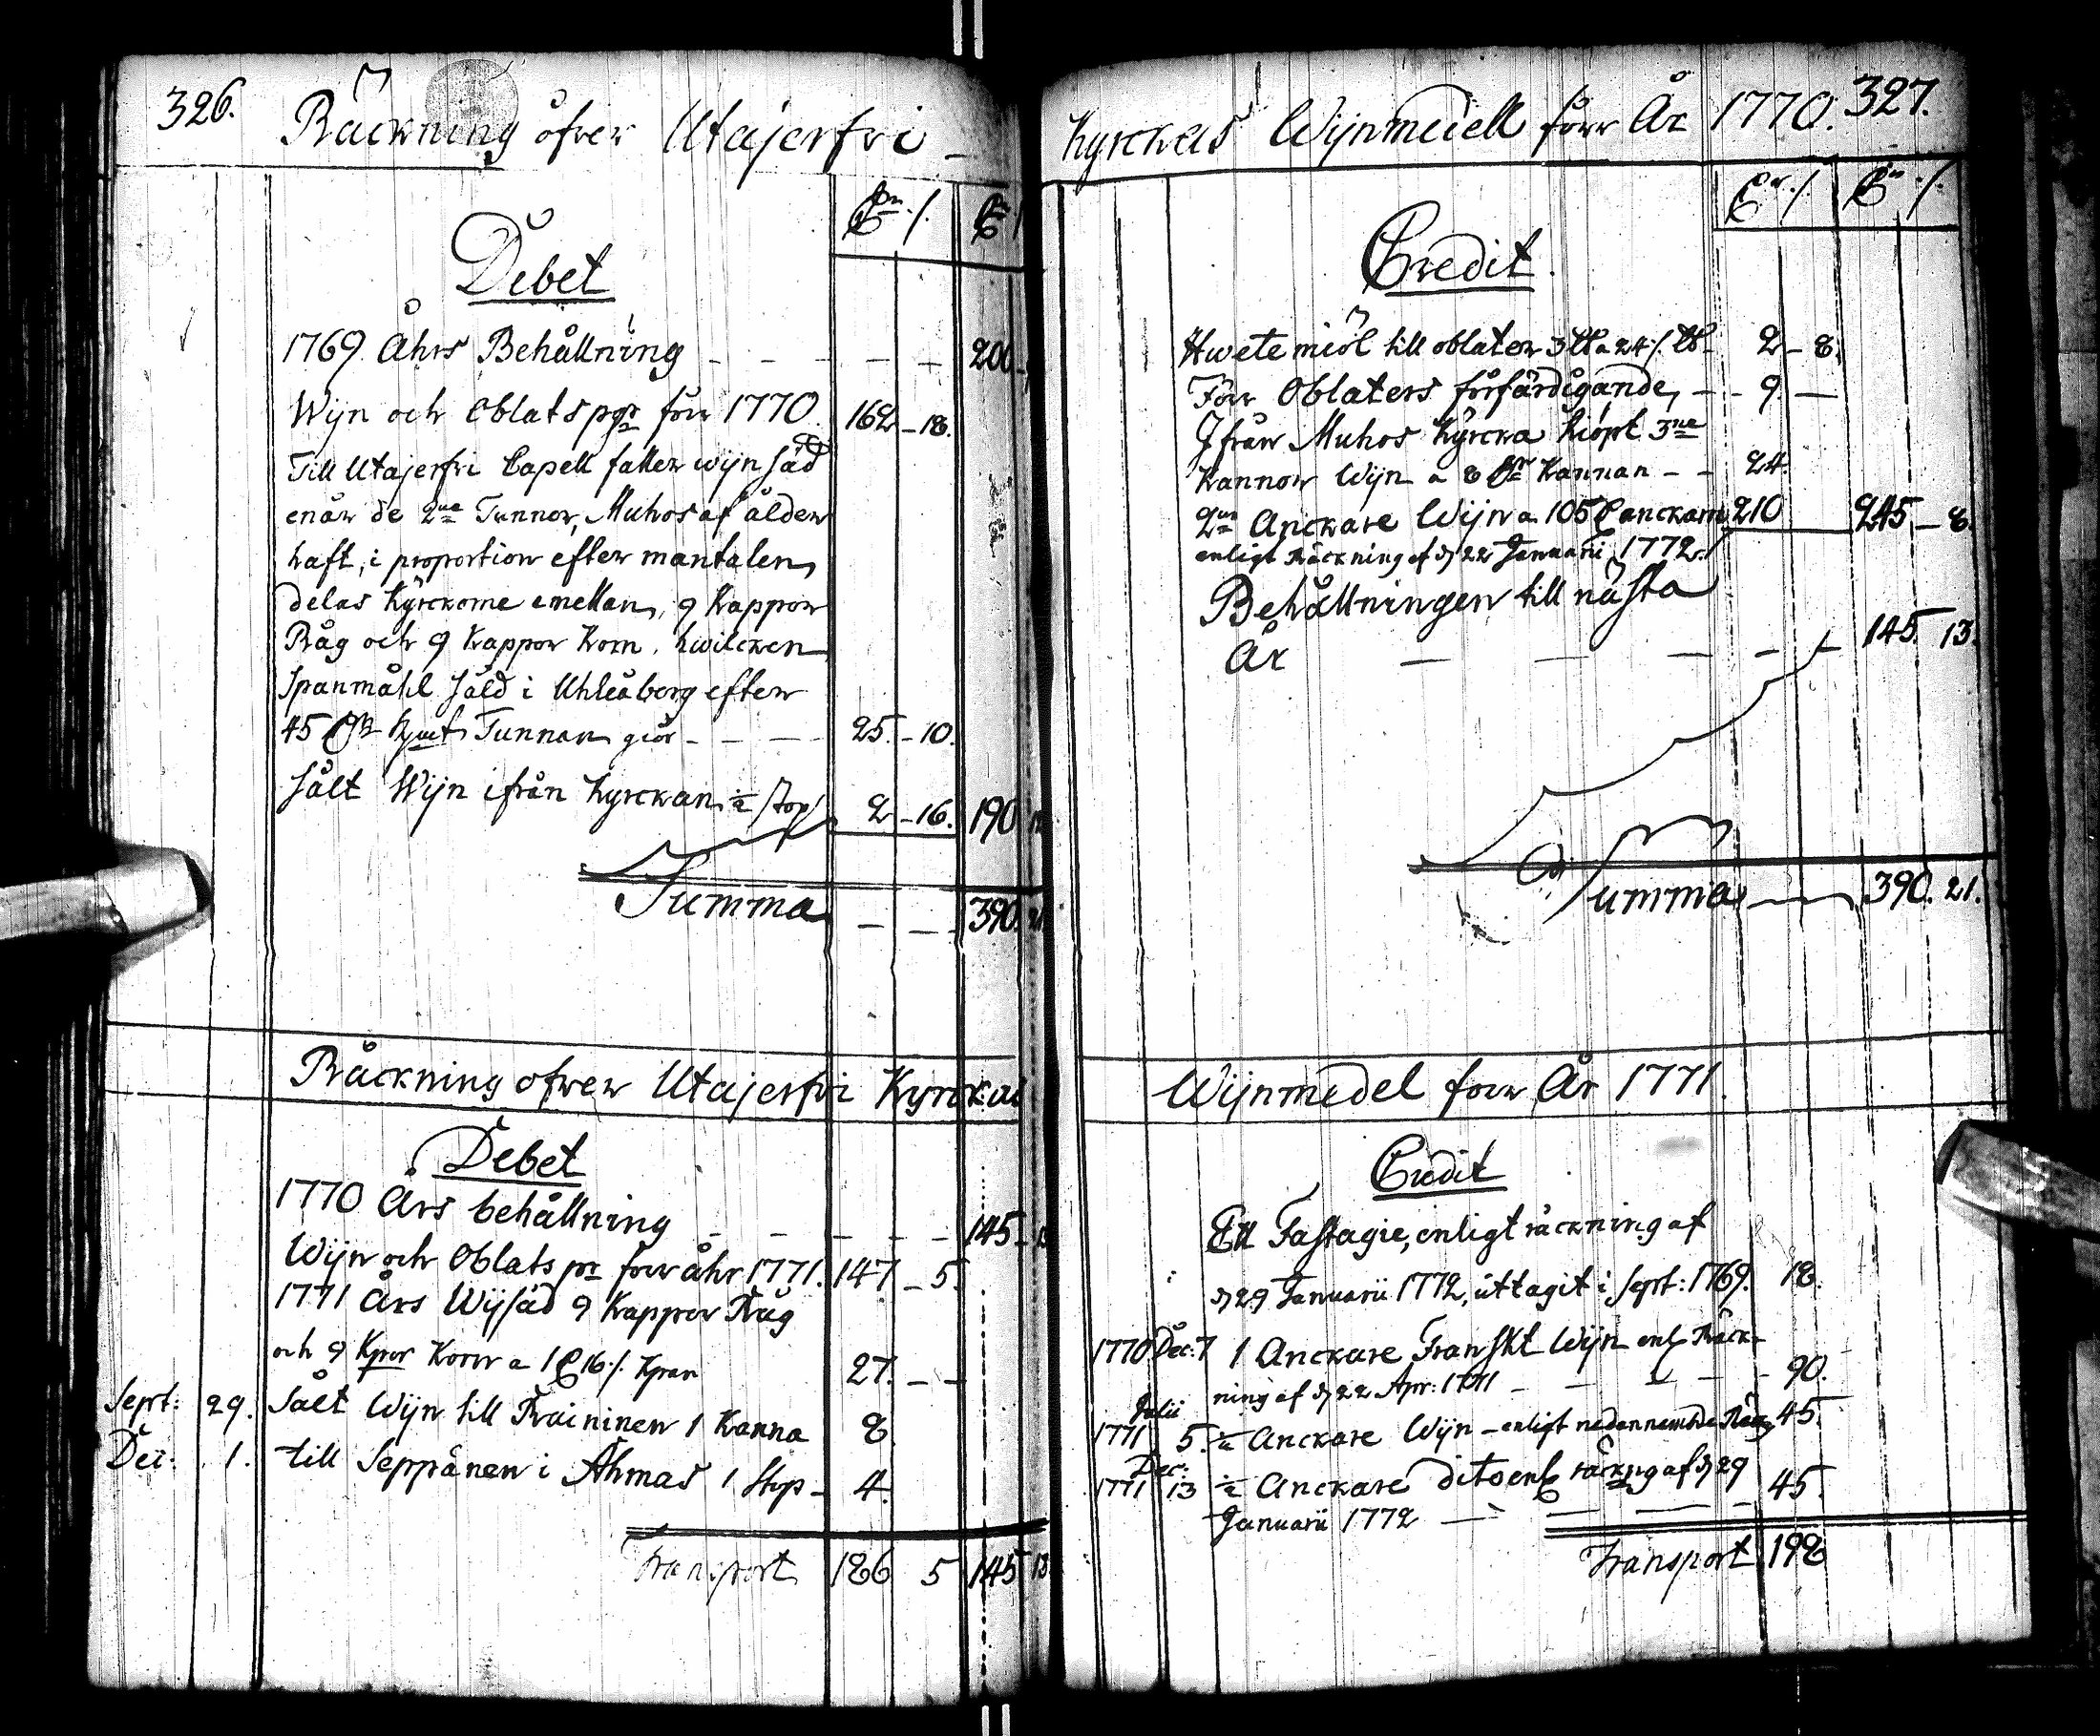 326.
Räckning öfver Utajerfvi
Debet
1769 Åhrs Behållning 200
Wijn och Oblats pgr förr 1770. 162 - 18.
Till Utajerfvi Capell faller wijn säd
enär de 2ne Tunnor, Muhos af ålder
haft, i proportion efter mantalen,
delas Kyrckorne emellan, 9 Kappor
Råg och 9 Kappor Korn, hwilcken
Spanmåhl såld i Uhleåborg efter
45 Kpmt Tunnan giör - 25. - 10.
Sålt Wijn ifrån Kyrckan ½ stop 2 - 16. 190
Summa 390.
Räckning öfwer Utajerfvi Kyrckas
Debet
1770 Års behållning 145
Wijn och Oblats pr förr åhr 1771. 147 - 5.
1771 Års Wijsäd 9 Kappor Råg
och 9 Kpor Korn a 1 16 Kpan 27. - -
Sept: 29. Sålt Wijn till Raininen 1 Kanna 8
Dec: 1. till Seppänen i Ahmas 1 stop - 4.
Transport 186 5 145 13
327.
Kyrckas Wijnmedell förr År 1770.
Credit
Hwetemiöl till oblater 3 ℔ a 24 ℔ 2 - 8.
Förr Oblaters förfärdigande, - 9 -
Ifrån Muhos Kyrcka kiöpt 3ne
Kannor Wijn a 8 Kannan - - 24
2ne Anckare Wijn a 105 anckarn 210 245 - 8.
enligt Räckning af d 22 Januarii 1772.
Behållningen till nästa
År 145. 13.
Summa 390. 21.
Wijnmedel förr År 1771.
Credit
Ett Fastagie, enligt räckning af
d 29 Januarii 1772, uttagit i Sept: 1769. 18.
1770 Dec: 7 1 Anckare Franskt Wijn enl Räck-
ning af d 22 Apr: 1771 - 90.
Julii
1771 5. ½ Anckare Wijn - enligt nedannemde Räkg 45.
Dec:
1771 13 ½ Anckare dito enl räckng af d 29
Januarii 1772 45.
Transport 198